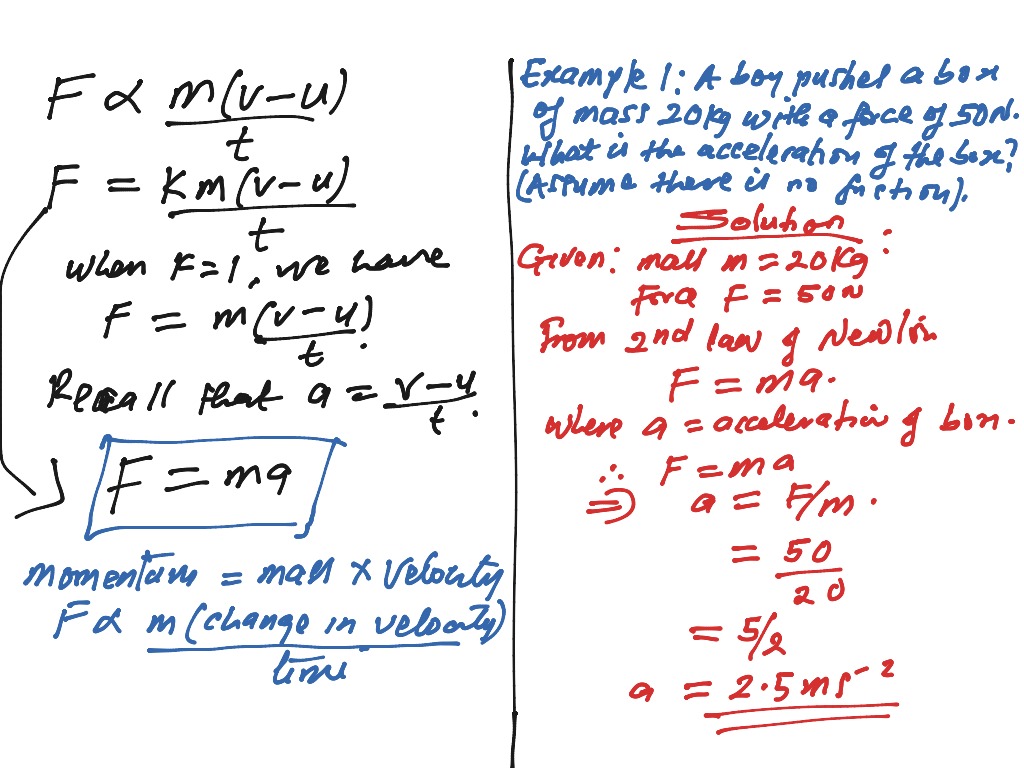 F ∝ m(v-u)/t
F = K m(v-u)/t
when K=1, we have
F = m(v-u)/t.
Recall that a = v-u/t.
F = ma
momentum = mass x velocity
F ∝ m(change in velocity)/time
Example 1: A boy pushes a box
of mass 20kg with a force of 50N.
What is the acceleration of the box?
(Assume there is no friction).
Solution
Given: mass m = 20kg;
Force F = 50N
From 2nd law of Newton
F = ma.
where a = acceleration of box.
∴ F = ma
⇒ a = F/m.
= 50/20
= 5/2
a = 2.5ms⁻²